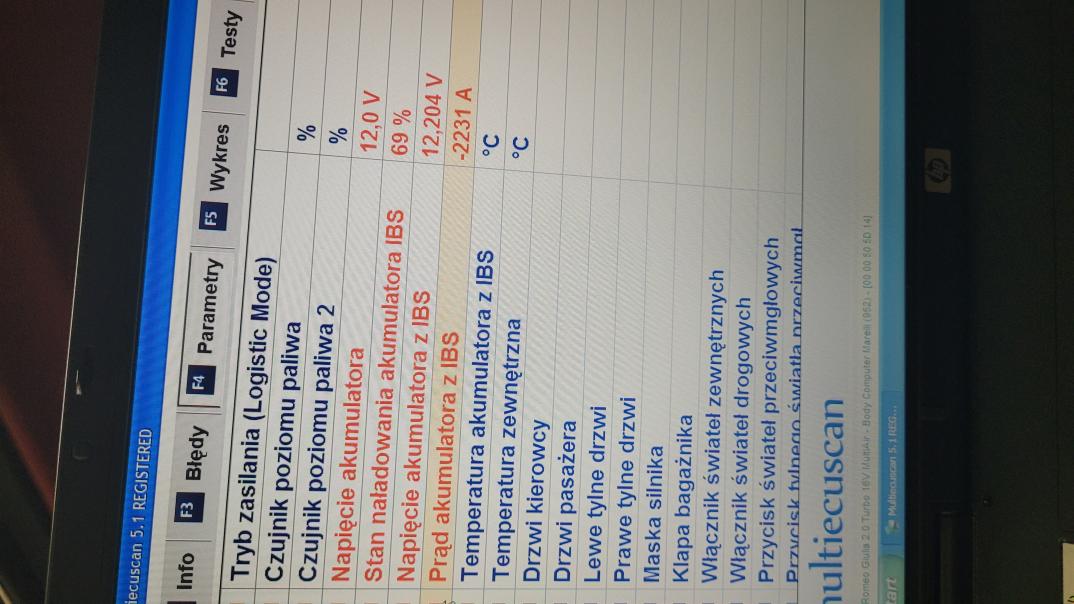 iecuscan 5.1 REGISTERED
Info F3 Błędy F4 Parametry F5 Wykres F6 Testy
Tryb zasilania (Logistic Mode)
Czujnik poziomu paliwa %
Czujnik poziomu paliwa 2 %
Napięcie akumulatora 12,0 V
Stan naładowania akumulatora IBS 69 %
Napięcie akumulatora z IBS 12,204 V
Prąd akumulatora z IBS -2231 A
Temperatura akumulatora z IBS °C
Temperatura zewnętrzna °C
Drzwi kierowcy
Drzwi pasażera
Lewe tylne drzwi
Prawe tylne drzwi
Maska silnika
Klapa bagażnika
Włącznik świateł zewnętrznych
Włącznik świateł drogowych
Przycisk świateł przeciwmgłowych
Przycisk tylnego światła przeciwmgł
multiecuscan
Romeo Giulia 2.0 Turbo 16V MultiAir - Body Computer Marelli (952) - [00 00 50 5D 14]
tart Multiecuscan 5.1 REG...
hp